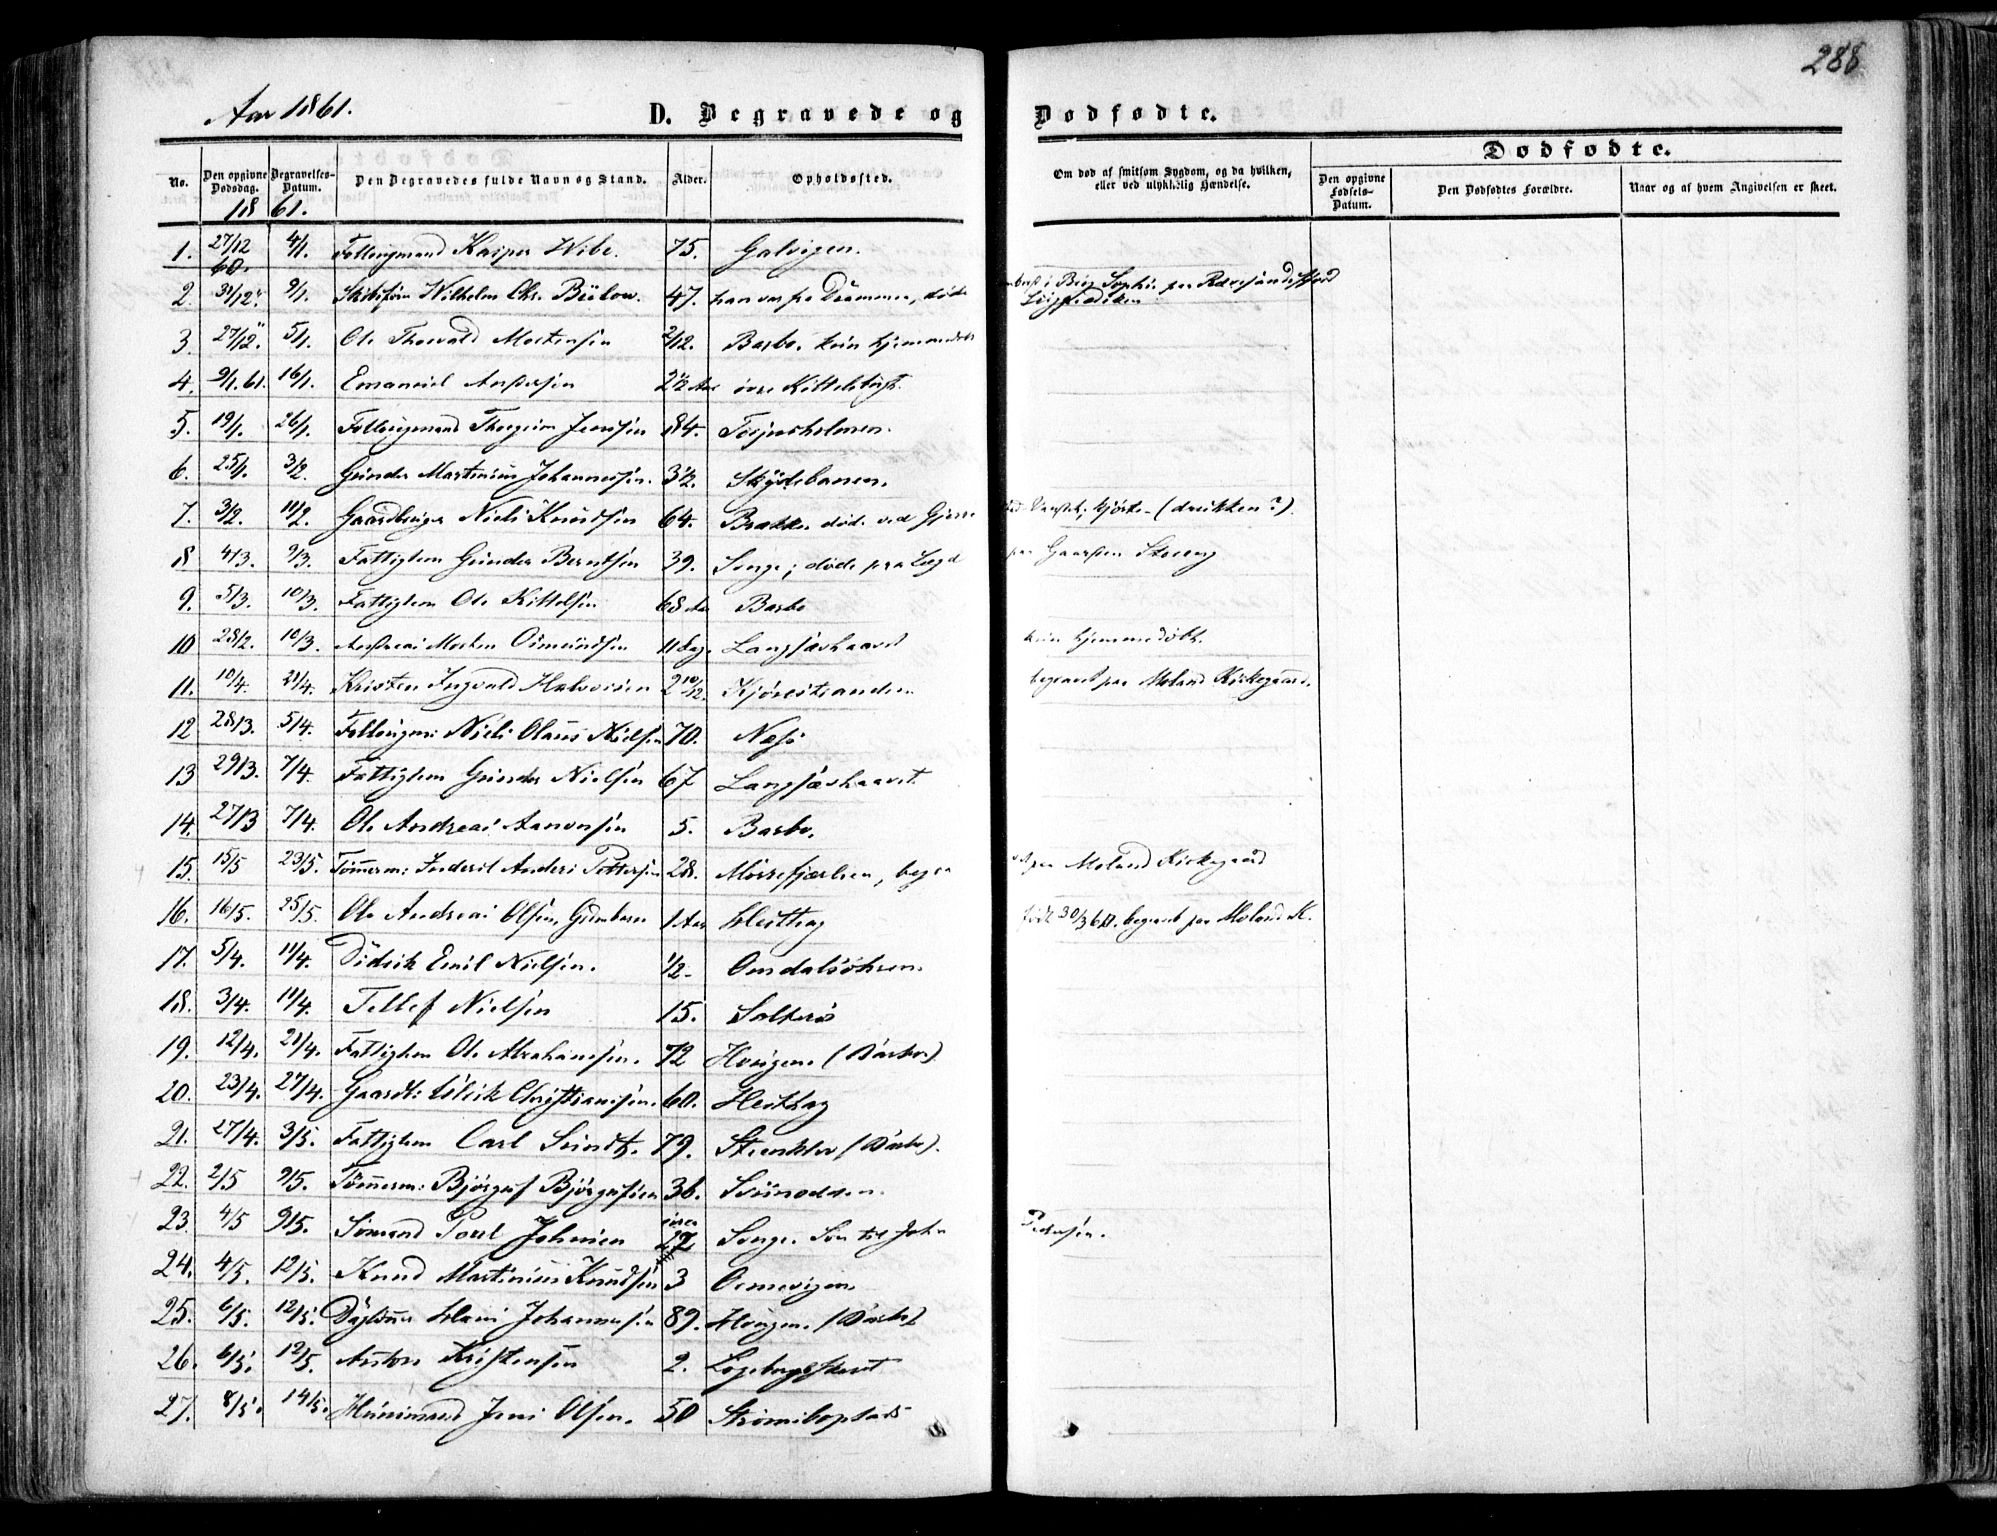 288
Aar 1861.
D. Begravede og Dødfødte.
No. Den opgivne Dødsdag. Begravelses-Datum. Den Begravedes fulde Navn og Stand. Alder. Opholdssted. Om død af smitsom Sygdom, og da hvilken, eller ved ulykkelig Hændelse. Dødfødte.
Den opgivne Fødsels-Datum. Den Dødfødtes Forældre. Naar og af hvem Angivelsen er skeet.
1861.
1. 27/12 60. 4/1. Føllougmand Kasper Wibe. 75. Galvigen.
2. 31/12 " 9/1. Wilhelm Chr. Bülow. 47. han var fra Drammen, døde i Brig Sophie
3. 27/12 " 5/1. Ole Thorvald Mortensen 2/12. Barbo. kun hjemmedøbt
4. 9/1. 61. 16/1. Emanuel Andersen 2 1/2 Aar øvre Kittelsbugt.
5. 19/1. 26/1. Føllougmand Jensen 84. Torjusholmen.
6. 25/1. 3/2. Gunder Martinius Johannesen. 3 1/2. Skydebanen.
7. 3/2. 11/2. Gaardbruger Niels Knudsen 64. Brække. døde ved (drukken?).
8 4/3. 9/3. Fattiglem Gunder Berntsen 39. Songe; døde paa Lægd paa
9. 5/3. 10/3. Fattiglem Ole Kittelsen 68 Aar Barbo
10 28/2. 10/3. Andreas Morten Osmundsen 11 Dage Langsæhaavet kun hjemmedøbt.
11. 10/4. 21/4. Kristen Ingvald Halvorsen 2 10/12. Kjørestranden begravet paa Moland Kirkegaard.
12 28/3. 5/4. Føllougm: Niels Olaus Nielsen 70. Næsø
13 29/3. 7/4. Fattiglem Gunder Nielsen 67 Langsæhaavet.
14. 27/3 7/4. Ole Andreas Aanonsen 5. Barbo.
15. 15/5 23/5. Tømmerm: Anders Pettersen 28. Mørefjærbien, begravet paa Moland Kirkegaard
16. 16/5. 25/5. Ole Andreas Olsen, 1 Aar født 30/3 60. begravet paa Moland K.
17. 5/4. 11/4. Didrik Emil Nielsen. 1/2. Omdalsøhren.
18. 3/4. 11/4. Tellef Nielsen 15. Salterø
19. 12/4. 21/4. Fattiglem Ole Abrahamsen. 72 (Barbo)
20. 23/4. 27/4. Gaardb: Christiansen. 60. Hesthag
21. 27/4. 3/5. Fattiglem Carl Sundt. 79. Steenklev (Barbo).
22. 2/5 9/5. Tømmerm: Bjørguf Bjørgufsen 36. Sviinodden.
23. 4/5 9/5. Sømand Poul Johnsen 22 Songe. Søn til John Pedersen.
24. 4/5. 12/5. Knud Martinius Knudsen 3
25. 6/5. 12/5. Hans Johannesen 89. (Barbo)
26. 6/5. 12/5. Kristensen 2.
27. 8/5. 14/5. Huusmand Jens Olsen. 50 Strømsbopladsen